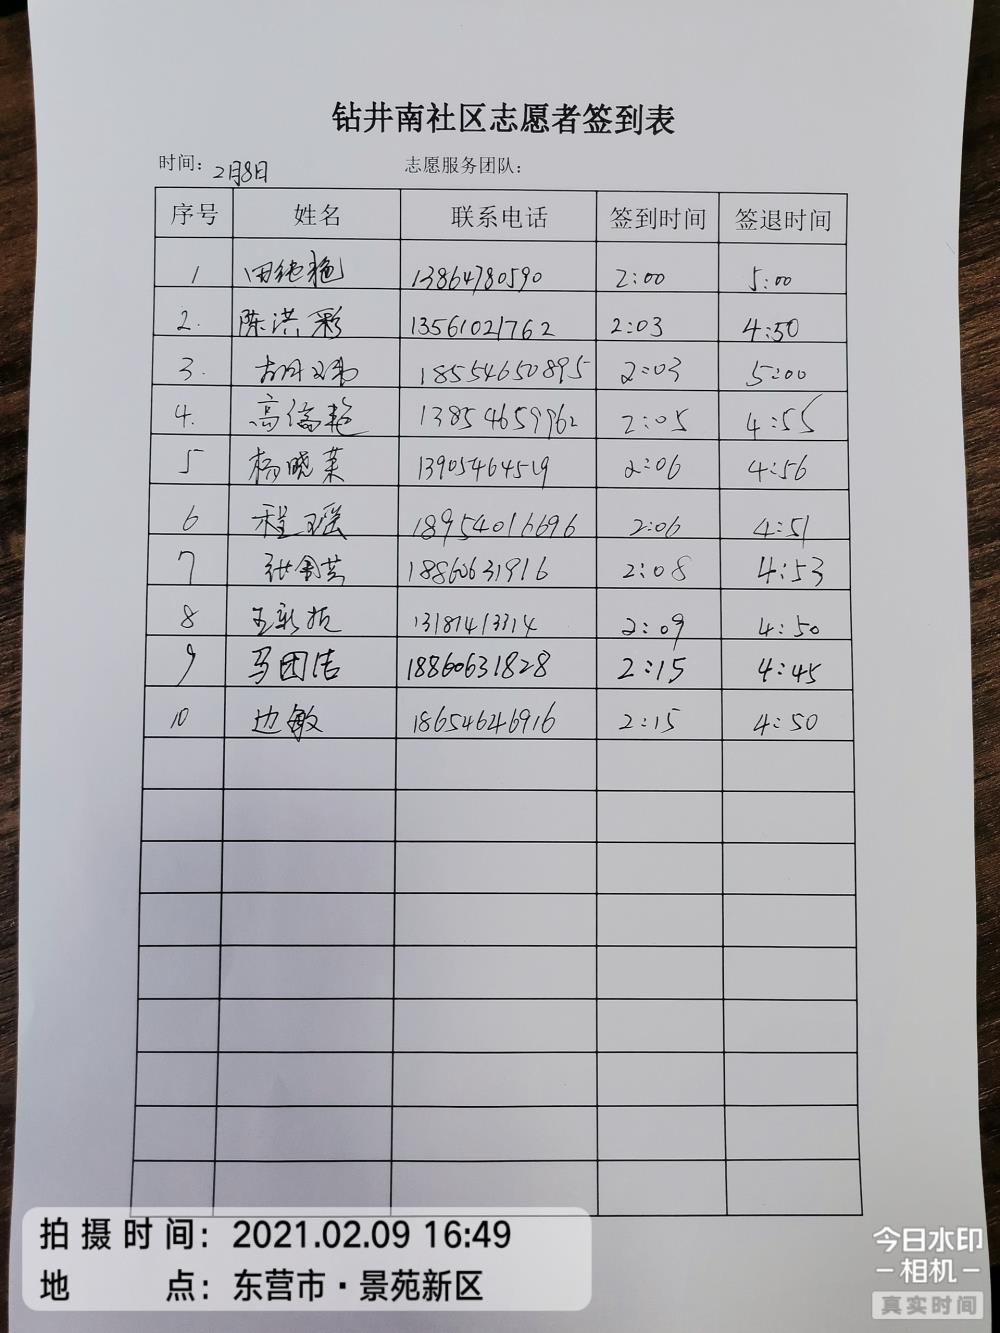 钻井南社区志愿者签到表
时间：2月8日 志愿服务团队：
序号 姓名 联系电话 签到时间 签退时间
1 田艳艳 13864780590 2:00 5:00
2. 陈洪彩 13561021762 2:03 4:50
3. 18554650895 2:03 5:00
4. 高倩艳 13854659962 2:05 4:55
5 杨晓莱 13905464519 2:06 4:56
6 程瑶 18954016696 2:06 4:51
7 18860631916 2:08 4:53
8 13181413314 2:09 4:50
9 马团洁 18860631828 2:15 4:45
10 边敏 18654646916 2:15 4:50
拍摄时间：2021.02.09 16:49
地点：东营市·景苑新区
今日水印
相机
真实时间